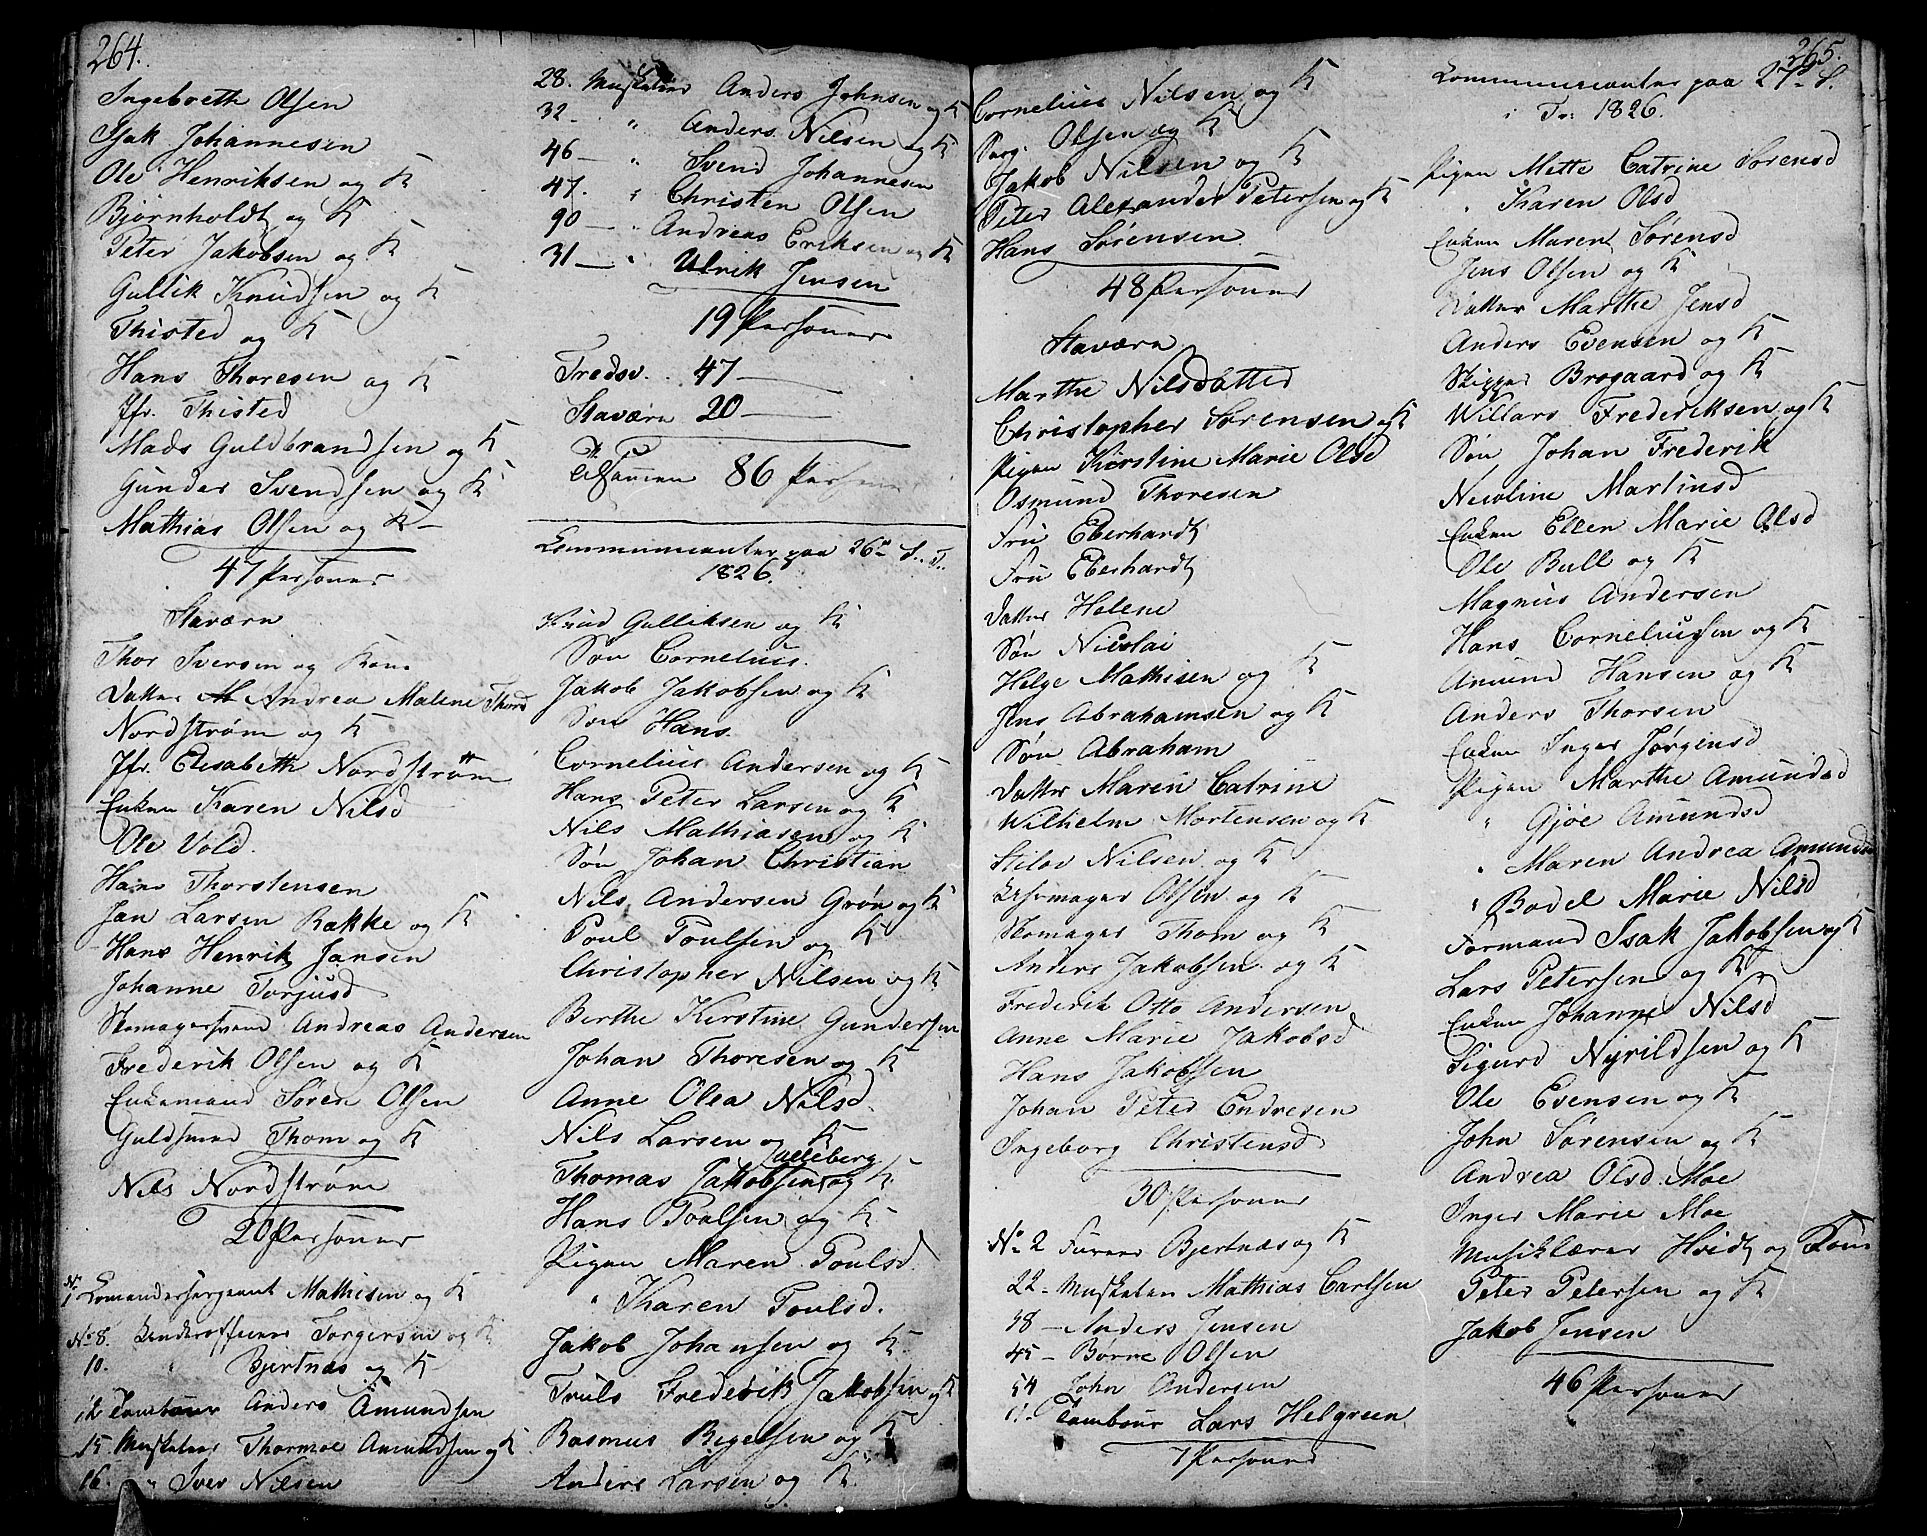 264.
Ingebreth Olsen
Isak Johannesen
Ole Henriksen og K
Bjørnholdt og K
Peter Jakobsen og K
Gullik Knudsen og K
Thisted og K
Hans Thoresen og K
Jfr. Thisted
Mads Guldbrandsen og K
Gunder Svendsen og K
Mathias Olsen og K
47 Personer
Staværn
Thor Iversen og Kone
Datter Andrea Malene Thord
Nordstrøm og K
Jfr. Elisabeth Nordstrøm
Enken Karen Nilsd
Ole Vold.
Hans Thorstensen
Jan Larsen Rakke og K
Hans Henrik Jansen
Johanne Torjusd
Skomagersvend Andreas Andersen
Frederik Olsen og K
Enkemand Søren Olsen
Guldsmed Thom og K
Nils Nordstrøm
20 Personer
No 1 Comandersergeant Mathisen og K
No 8. Underofficeer Torgersen og K
10. " Bjertnæs og K
12 Tambour Anders Amundsen
15. Musketeer Thormoe Amundsen og K
16. " Iver Nilsen
28. Musketeer Anders Johnsen og K
32 - " Anders Nilsen og K
46 - " Svend Johannesen
47. " Christen Olsen
90 - " Andreas Eriksen og K
31 - " Ulrik Jensen
19 Personer
Fredsv. .. 47 -
Staværn 20 -
Tilsammen 86 Personer
Communicanter paa 26de S. T.
1826.
Knud Gulliksen og K
Søn Cornelius.
Jakob Jakobsen og K
Søn Hans.
Cornelius Andersen og K
Hans Peter Larsen og K
Nils Mathiasen og K
Søn Johan Christian
Nils Andersen Grøn og K
Poul Poulsen og K
Christopher Nilsen og K
Berthe Kirstine Gundersen
Johan Thoresen og K
Anne Olea Nilsd.
Nils Larsen og K
Thomas Jakobsen Jalleberg og K
Hans Poulsen og K
Pigen Maren Poulsd.
" Karen Poulsd.
Jakob Johansen og K
Truls Frederik Jakobsen og K
Rasmus Bigelsen og K
Anders Larsen og K
265.
Cornelius Nilsen og K
Serg. Olsen og K
Jakob Nilsen og K
Peter Alexander Petersen og K
Hans Sørensen
48 Personer
Staværn
Marthe Nilsdatter
Christopher Sørensen og K
Pigen Kirstine Marie Olsd
Osmund Thoresen
Fru Eberhardt
Fru Eberhardt
Datter Helene
Søn Nicolai
Helge Mathisen og K
Jens Abrahamsen og K
Søn Abraham
Datter Maren Catrine
Wilhelm Mortensen og K
Nilsen og K
Olsen og K
Skomager Thom og K
Anders Jakobsen og K
Frederik Otto Andersen
Anne Marie Jakobsd
Hans Jakobsen
Johan Peter Endresen
Ingeborg Christensd
30 Personer
No 2 Fureer Bjertnæs og K
22 - Musketeer Mathias Carlsen
38 - Anders Jensen
45 - Børre Olsen
54 John Andersen
11. Tambour Lars Helgreen
7 Personer
Communicanter paa 27de S.
i Tr: 1826.
Pigen Mette Catrine Sørensd
" Karen Olsd
Enken Maren Sørensd
Jens Olsen og K
Datter Marthe Jensd
Anders Evensen og K
Skipper Brogaard og K
Willars Frederiksen og K
Søn Johan Frederik
Nicoline Martinsd
Enken Ellen Marie Olsd
Ole Bull og K
Magnus Andersen
Hans Corneliussen og K
Amund Hansen og K
Anders Thorsen
Enken Inger Jørgensd
Pigen Marthe Amundsd
" Gjøe Amundsd
" Maren Andrea Amundsen
" Bodel Marie Nilsd
Formand Isak Jakobsen og K
Lars Petersen og K
Enken Johanne Nilsd
Sigurd Nyrildsen og K
Ole Evensen og K
John Sørensen og K
Andrea Olsd. Moe
Inger Marie Moe
Musiklærer Hvidt og Kone
Peter Petersen og K
Jakob Jensen
46 Personer